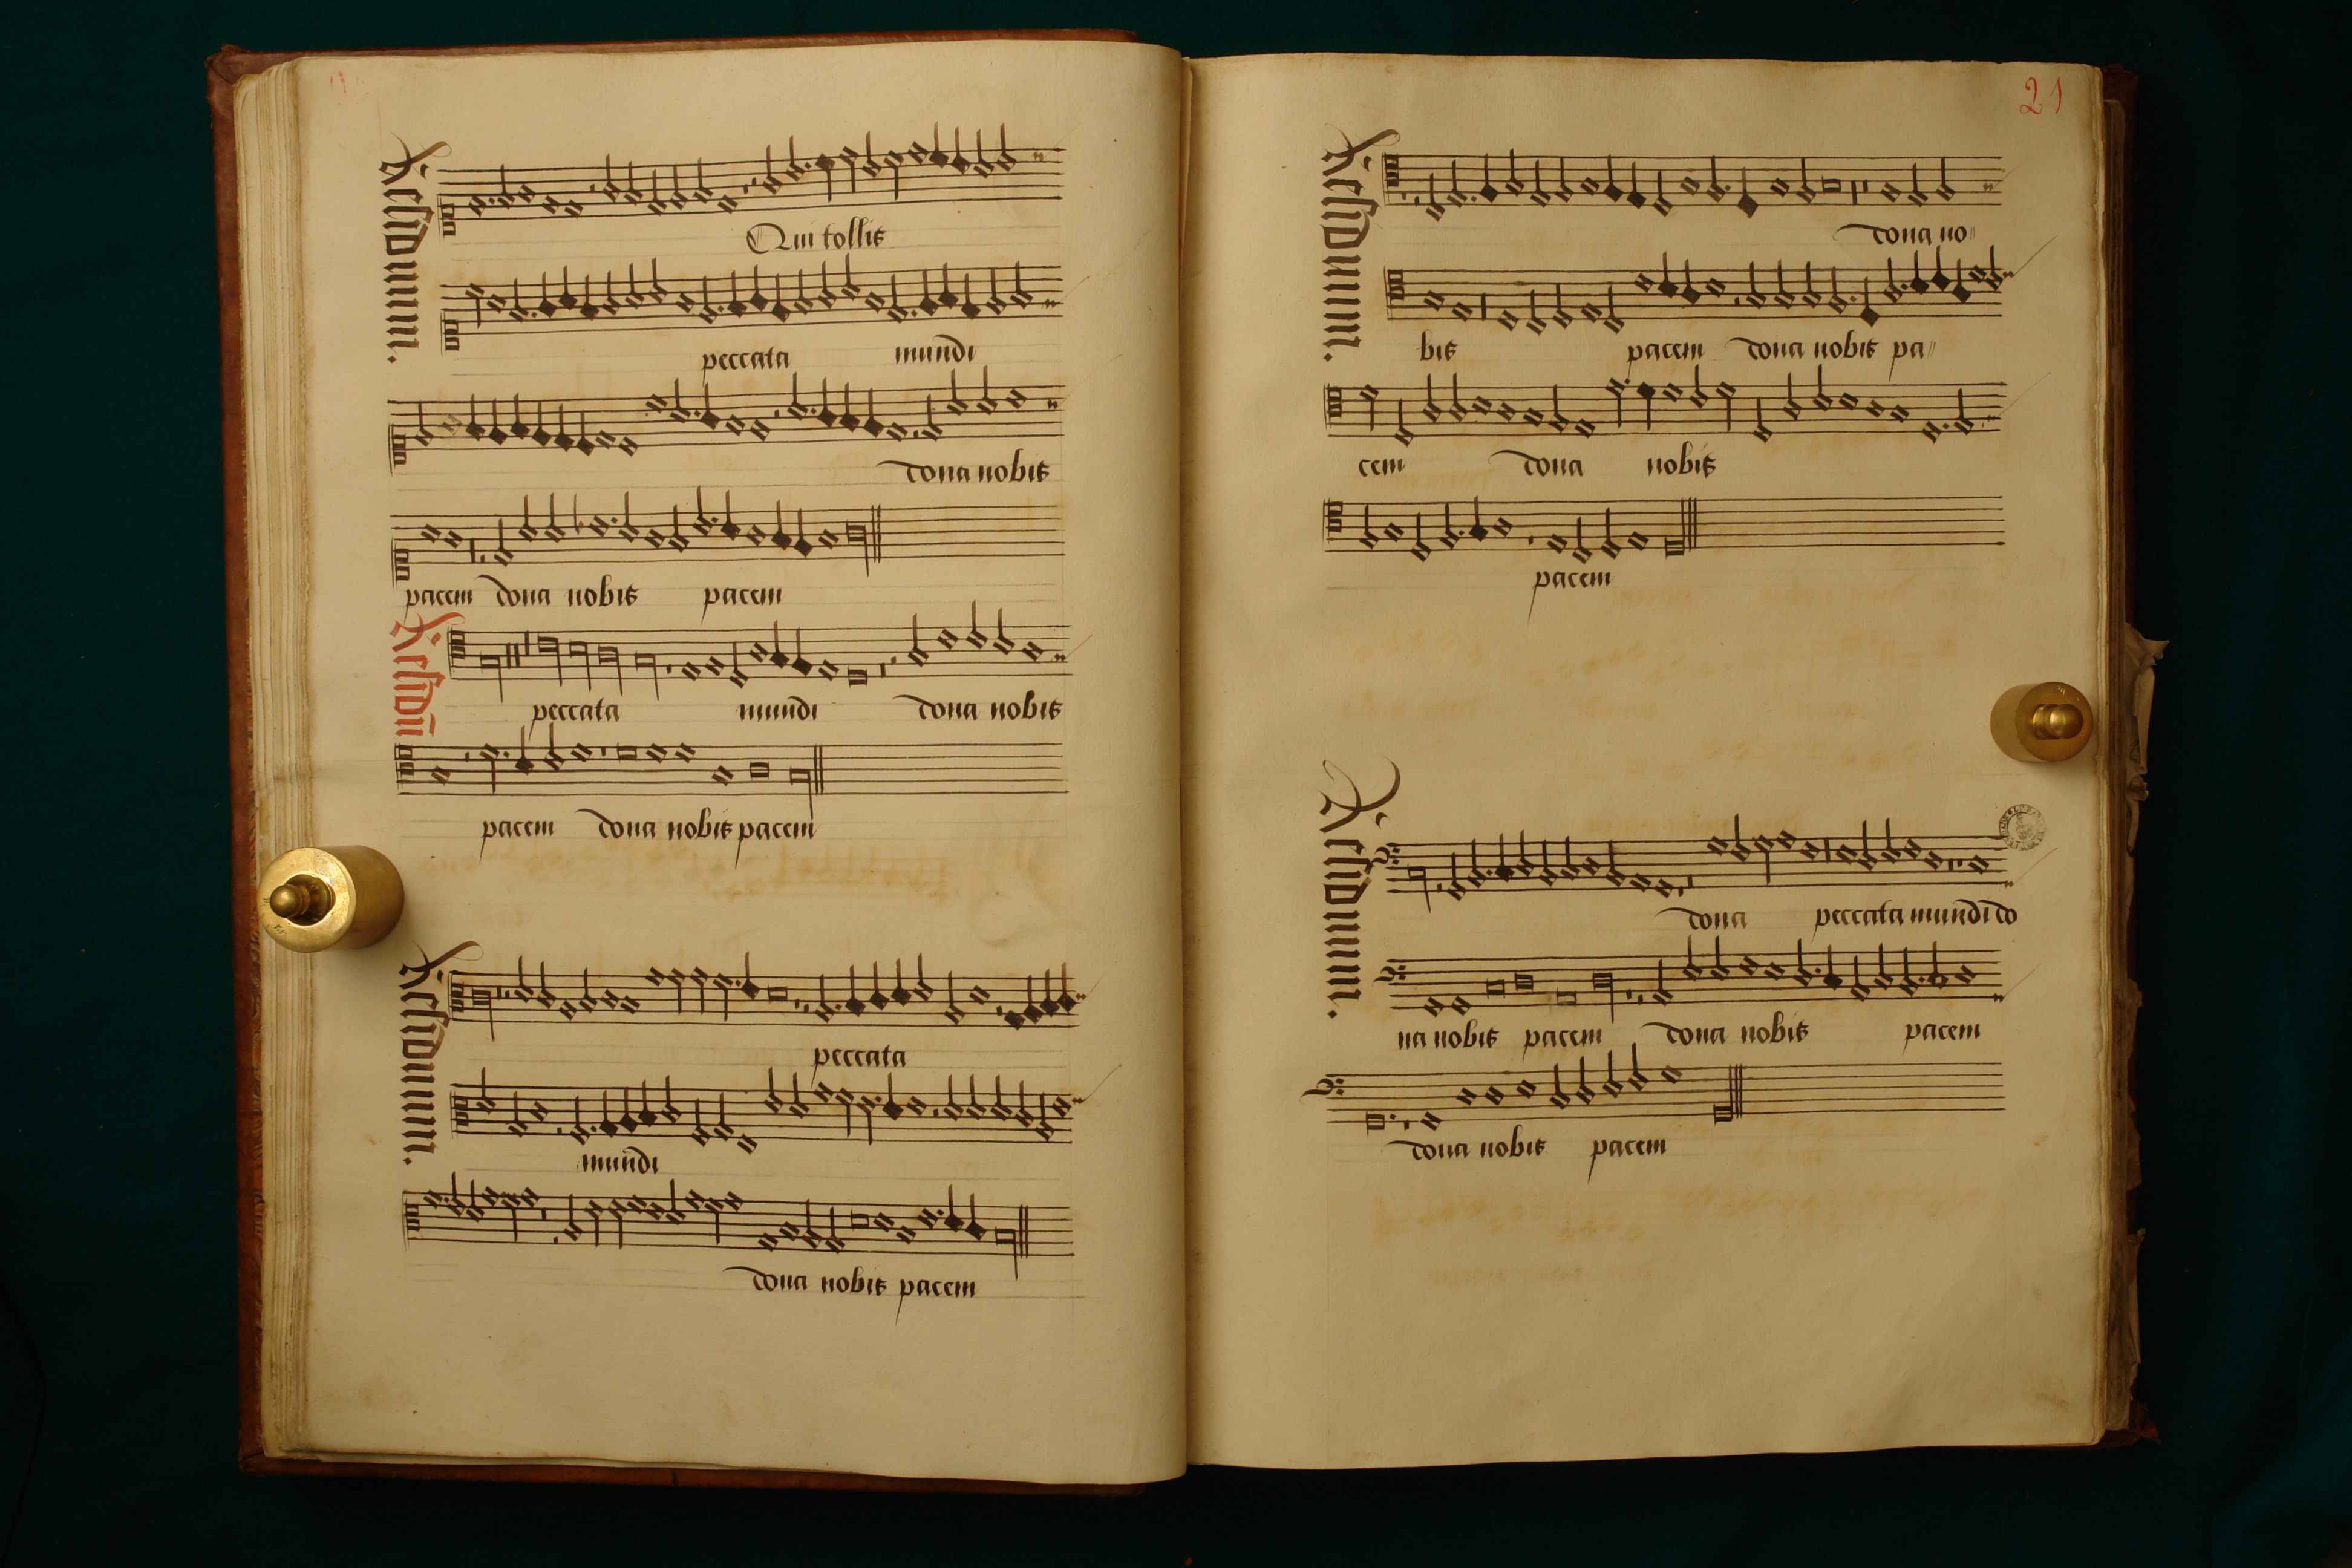 Residuum.
Qui tollis
peccata mundi
dona nobis
pacem dona nobis pacem
Residuū
peccata mundi dona nobis
pacem dona nobis pacem
Residuum.
peccata
mundi
dona nobis pacem
21
Residuum.
dona no
bis pacem dona nobis pa
cem dona nobis
pacem
Residuum.
dona peccata mundi do
na nobis pacem dona nobis pacem
dona nobis pacem